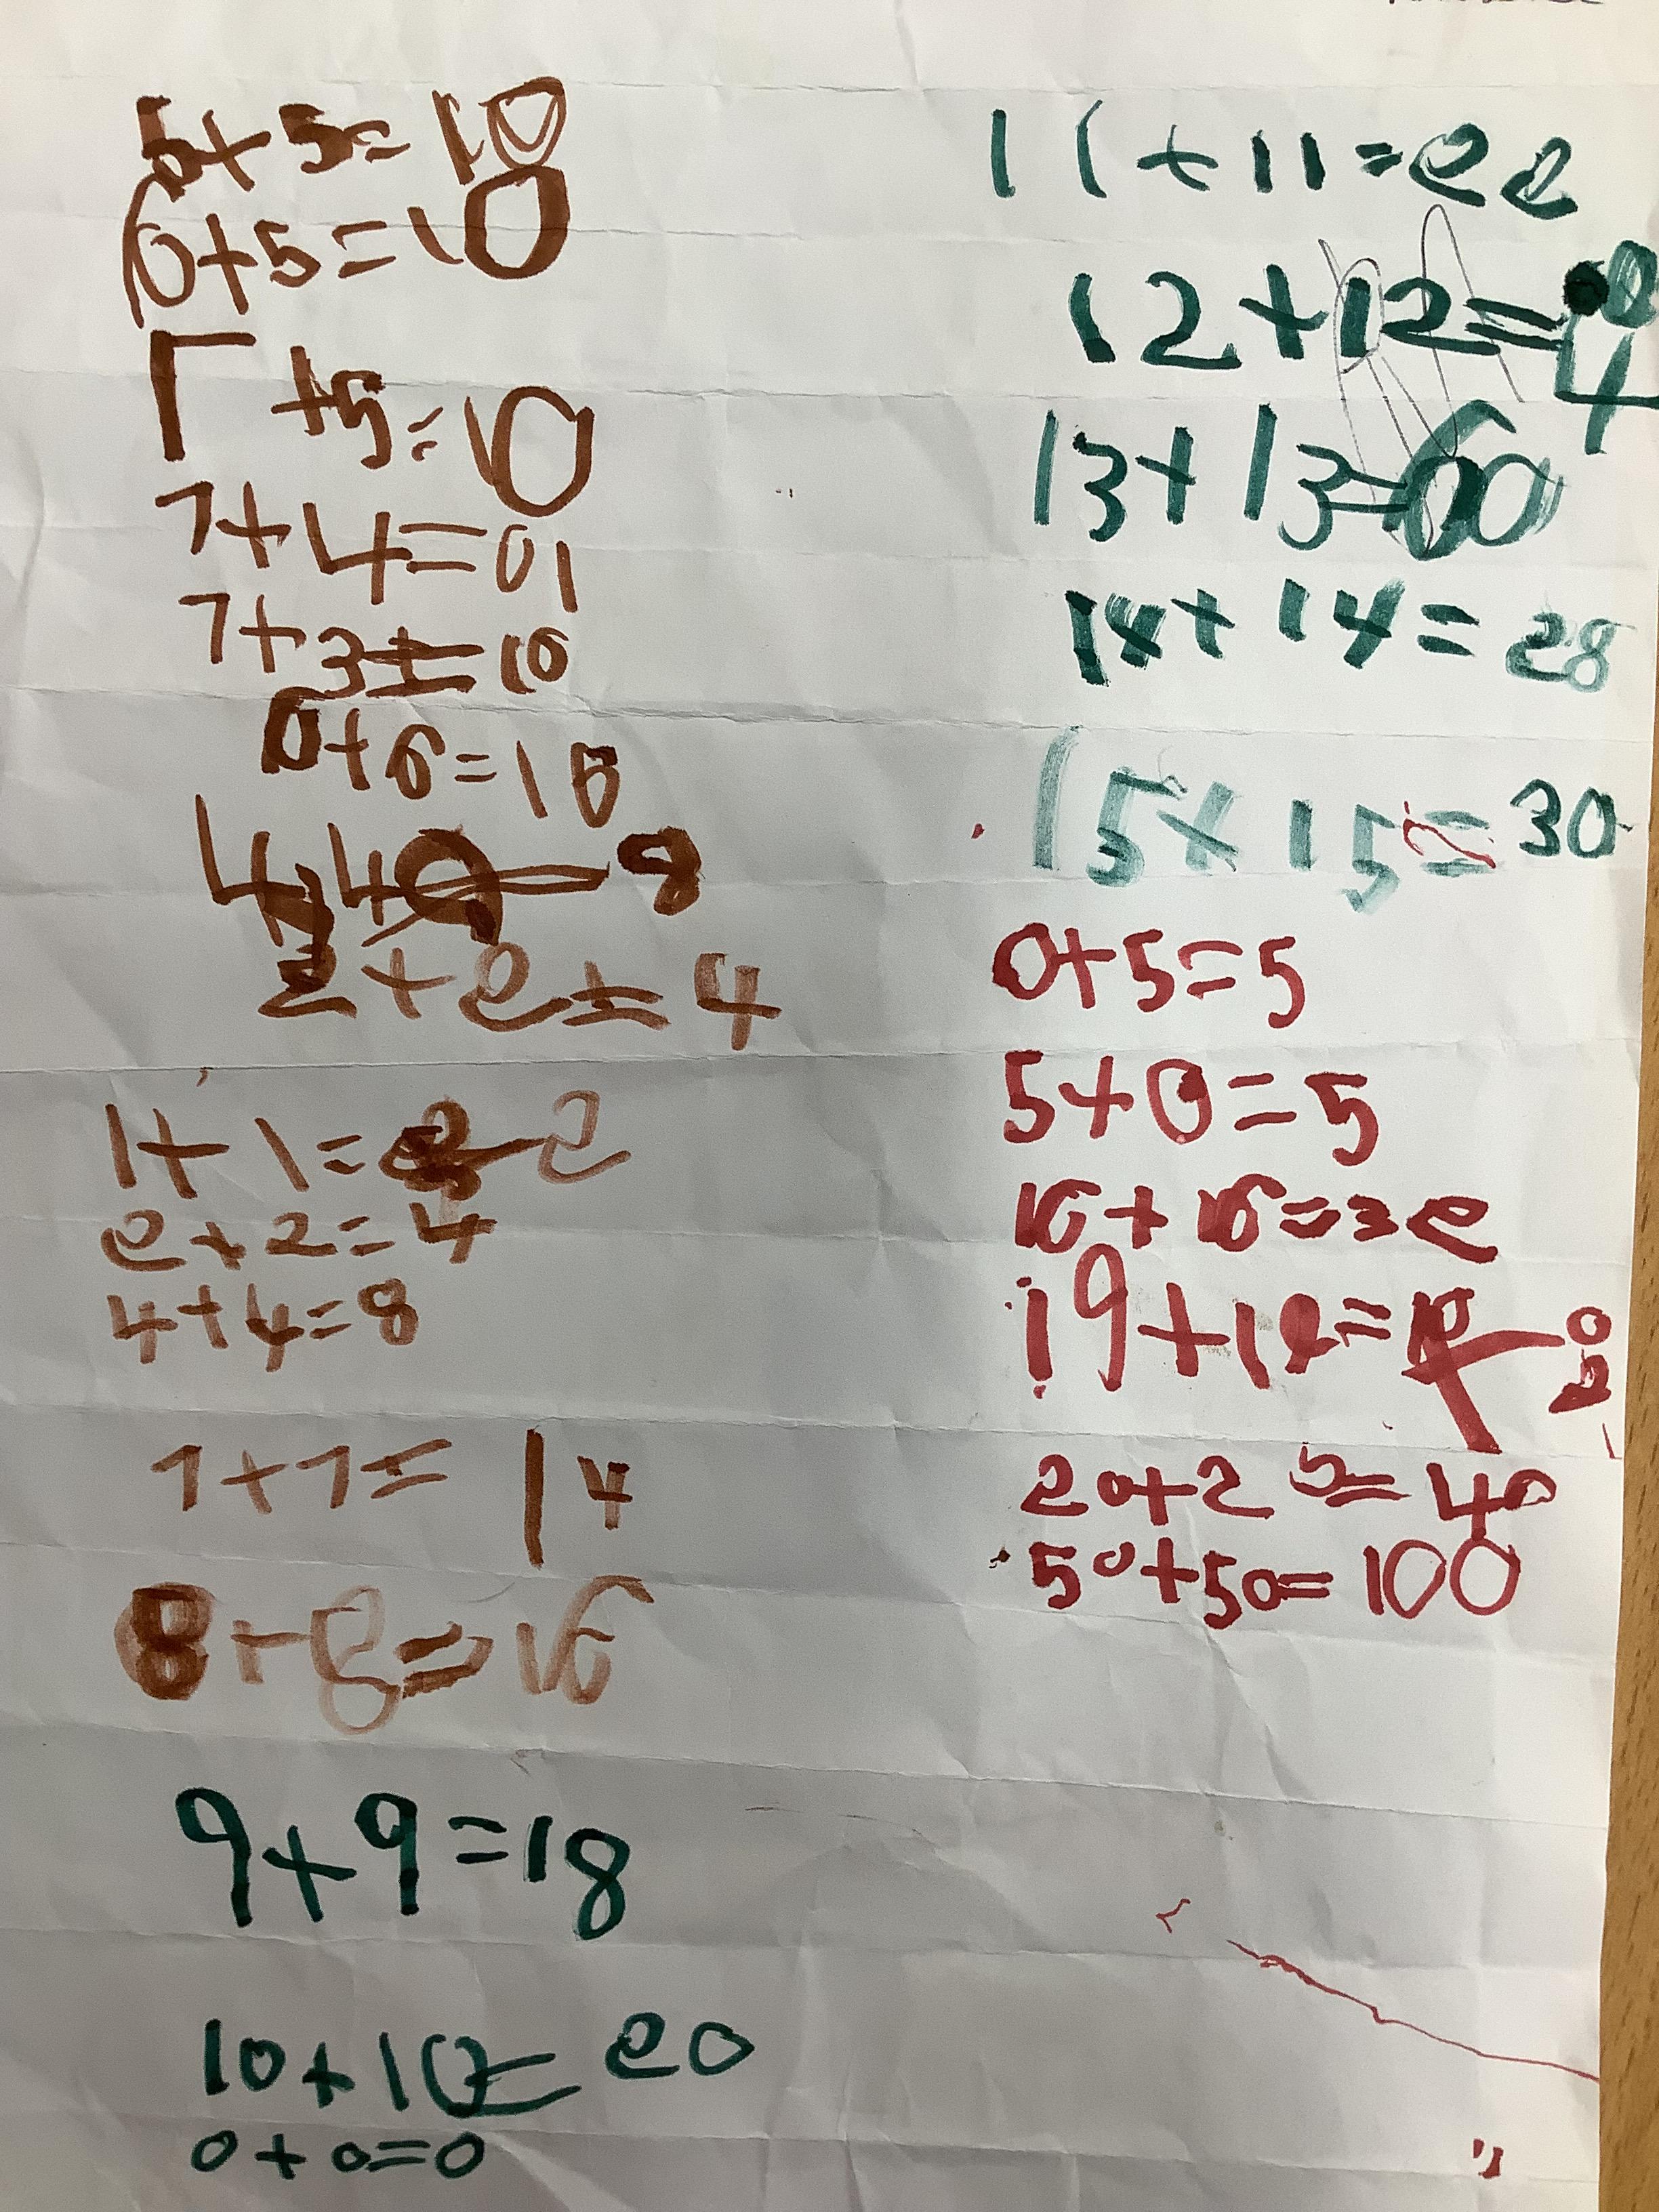 5+5=10
0+5=10
+5=10
7+4=01
7+3=10
0+6=16
4+4=8
2+2=4
1+1=2
2+2=4
4+4=8
7+7=14
8+8=16
9+9=18
10+10=20
0+0=0
11+11=22
12+12=
13+13=
14+14=28
15+15=30
0+5=5
5+0=5
16+16=32
19+1
20+2 =40
50+50=100